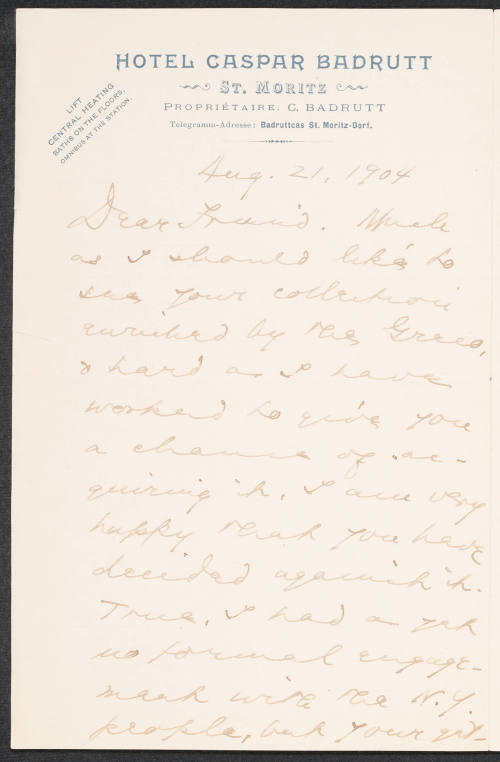 HOTEL CASPAR BADRUTT
ST. MORITZ
PROPRIÉTAIRE: C. BADRUTT
Telegramm-Adresse: Badruttcas St. Moritz-Dorf.
LIFT
CENTRAL HEATING
BATHS ON THE FLOORS,
OMNIBUS AT THE STATION.
Aug. 21, 1904
Dear Friend. Much
as I should like to
see your collection
enriched by the Greco,
& hard as I have
worked to give you
a chance of ac-
quiring it, I am very
happy that you have
decided against it.
True, I had as yet
no formal engage-
ment with the N.Y.
people, but your